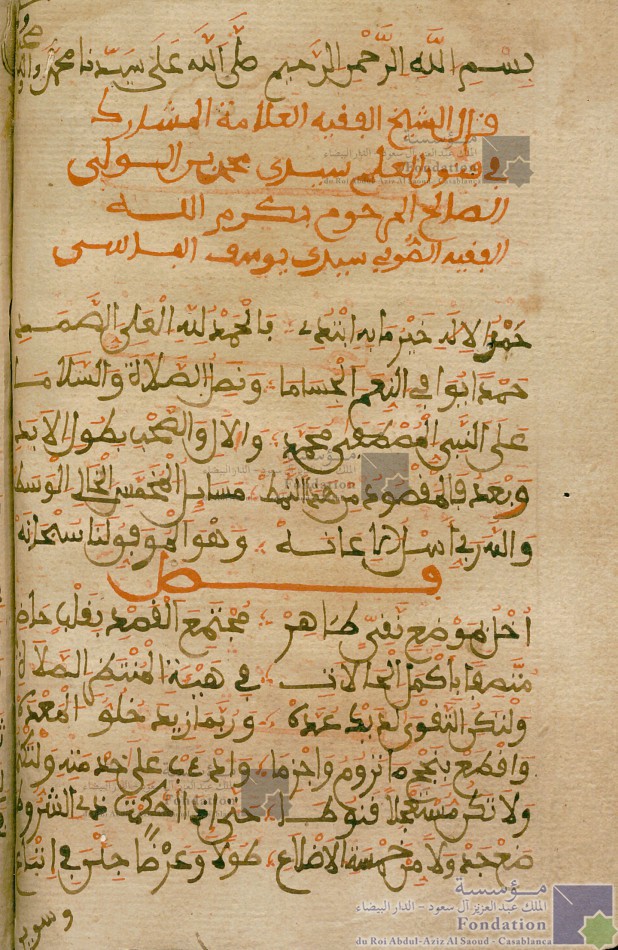 بسم الله الرحمن الرحيم صلى الله على سيدنا محمد وآله
قال الشيخ الفقيه العلامة المشارك
في العلم سيدي محمد بن
الصالح المرحوم بكرم الله
الفقيه الصوفي سيدي يوسف الفاسي
حمد الاله خير ما به ابتدء بالحمد لله العلي الصمد
حمدا يوافي النعم الجساما ونصل الصلاة والسلاما
على النبي المصطفى محمد والال والصحب بطول الابد
وبعد فالمقصود من هذا النمط مسايل المخمس الخالي الوسط
والله ربي اسل الاعانه وهو الموفق لنا سبحانه
فصل
ادخل موضع نقي طاهر مجتمع القصد بقلب حاضر
متصفا باكمل الحالات في هيئة المنتظر الصلاة
ولتكن التقوى لديك عدة وربما زيد خلو المعدة
واقطع بنجح ما تروم واجزما وادع على
ولا تكن مستعجلا قنوطا حتى اذا احكمت ذي الشروط
ضع جدولا من خمسة الاضلاع طولا وعرضا
مؤسسة
الملك عبد العزيز آل سعود - الدار البيضاء
Fondation
du Roi Abdul-Aziz Al Saoud - Casablanca